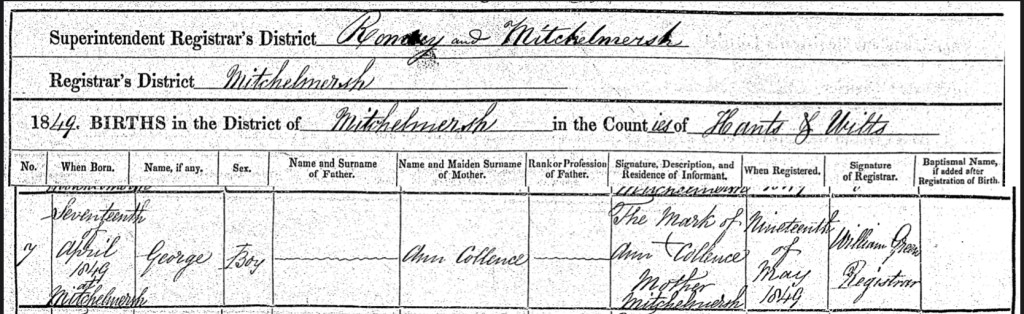 Superintendent Registrar's District Romsey and Mitchelmersh
Registrar's District Mitchelmersh
1849. BIRTHS in the District of Mitchelmersh in the Counties of Hants & Wilts
No. When Born. Name, if any. Sex. Name and Surname of Father. Name and Maiden Surname of Mother. Rank or Profession of Father. Signature, Description, and Residence of Informant. When Registered. Signature of Registrar. Baptismal Name, if added after Registration of Birth.
7
Seventeenth
of
April
1849
at
Mitchelmersh
George
Boy
Ann Collence
The Mark of
Ann + Collence
Mother
Mitchelmersh
Nineteenth
of
May
1849
William Green
Registrar